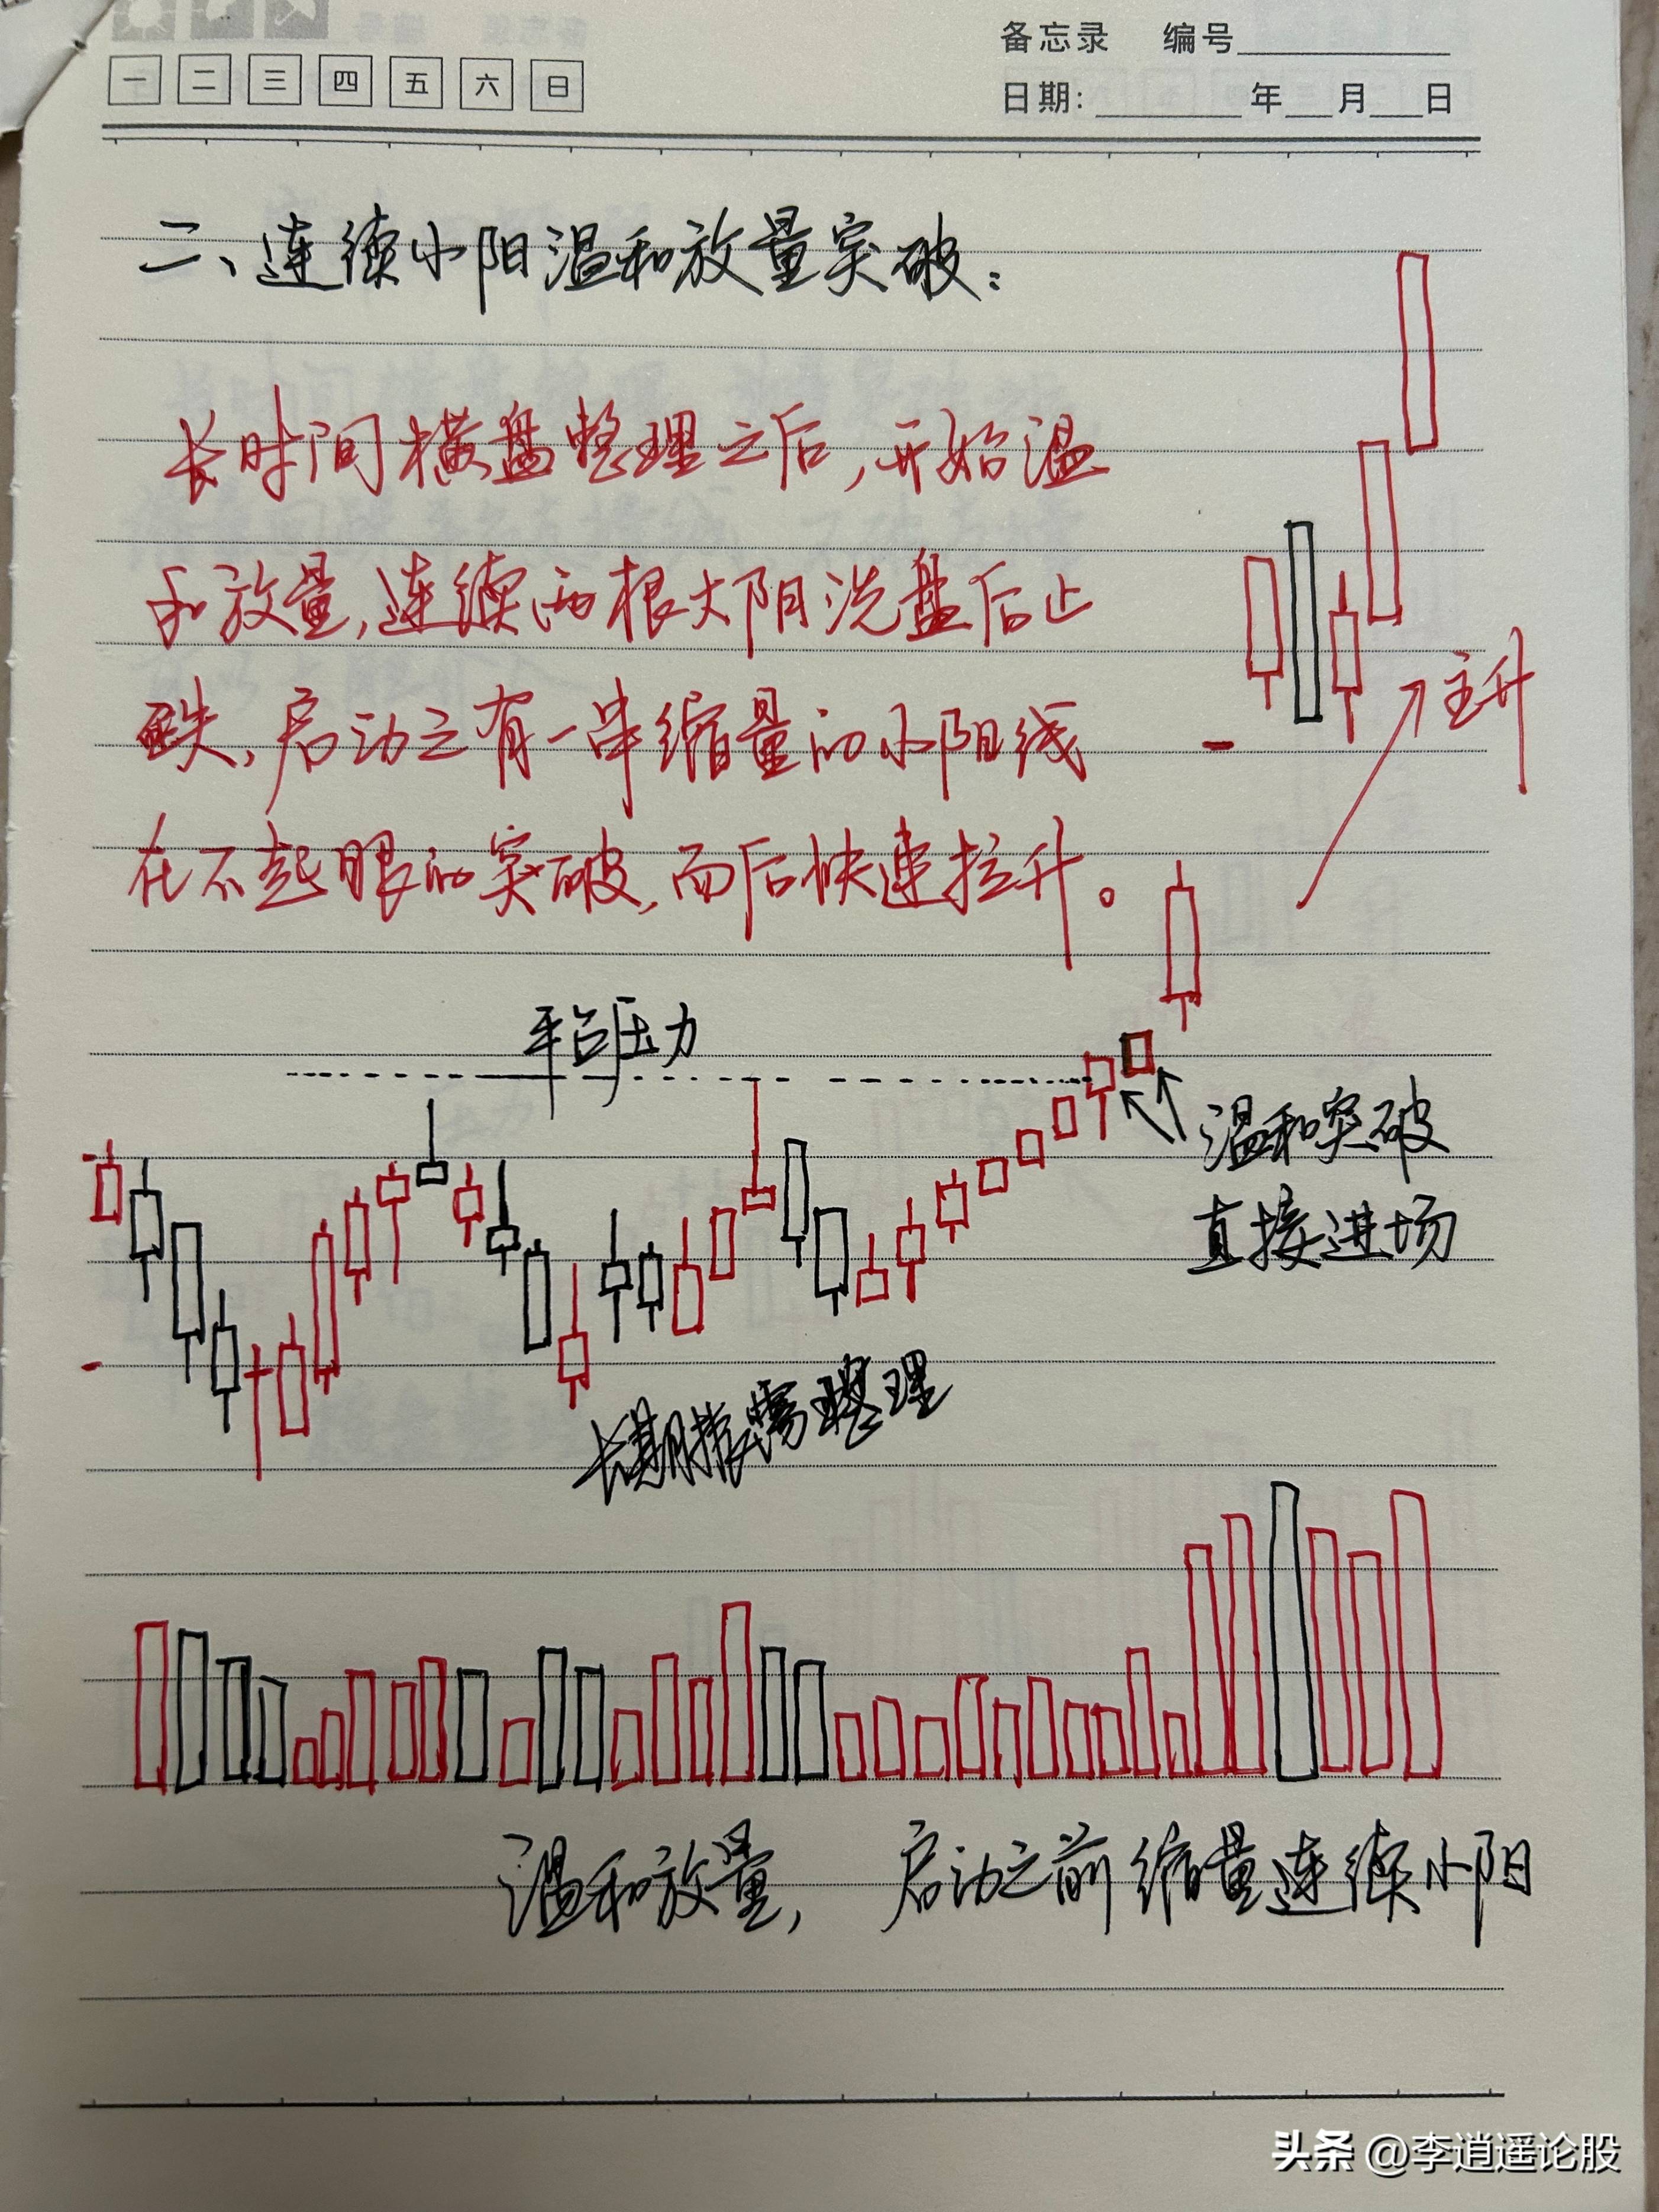 备忘录 编号
一 二 三 四 五 六 日
日期: 年 月 日
二、连续小阳温和放量突破：
长时间横盘整理之后，开始温
和放量，连续两根大阴洗盘后止
跌，启动之有一串缩量的小阳线
在不起眼的突破，而后快速拉升。
主升
平台压力
温和突破
直接进场
长期振荡整理
温和放量， 启动之前缩量连续小阳
头条 @李逍遥论股